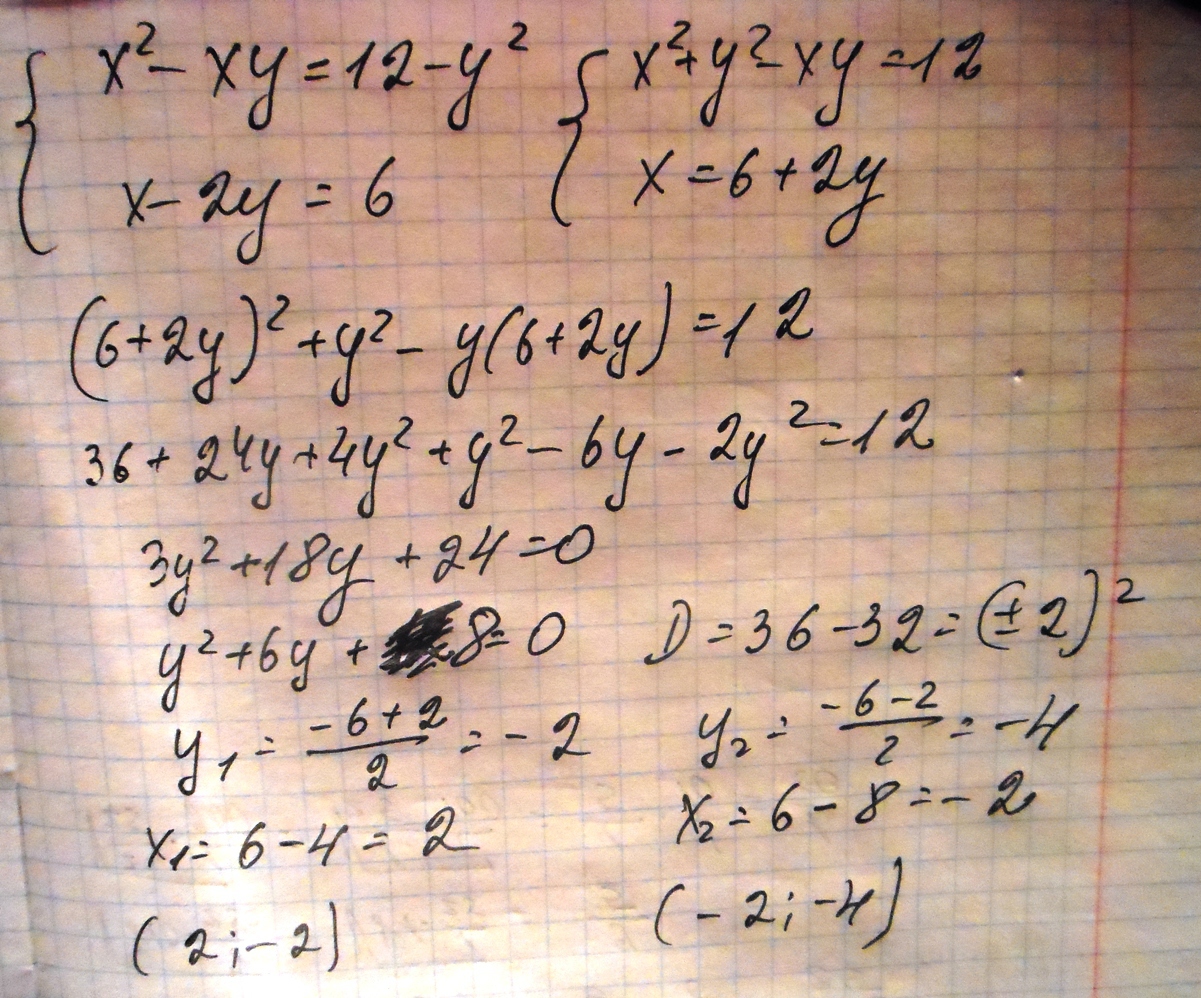 { x² - xy = 12 - y² { x² + y² - xy = 12
x - 2y = 6 x = 6 + 2y
(6+2y)² + y² - y(6+2y) = 12
36 + 24y + 4y² + y² - 6y - 2y² = 12
3y² + 18y + 24 = 0
y² + 6y + 8 = 0 D = 36 - 32 = (±2)²
y₁ = (-6+2)/2 = -2 y₂ = (-6-2)/2 = -4
x₁ = 6 - 4 = 2 x₂ = 6 - 8 = -2
(2; -2) (-2; -4)